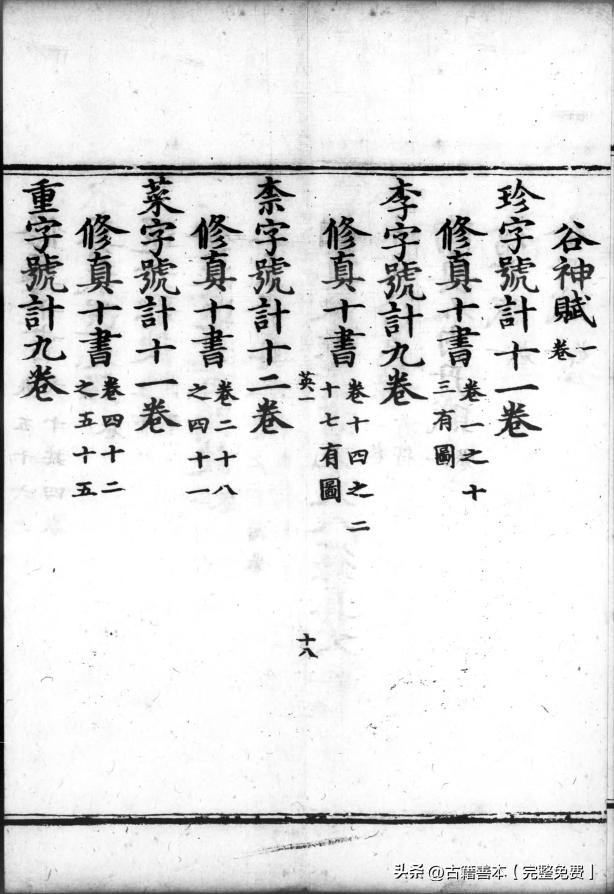 谷神賦一卷
珍字號計十一卷
修真十書卷一之十三有圖
李字號計九卷
修真十書卷十四之二十七有圖
英一
十八
柰字號計十二卷
修真十書卷二十八之四十一
菜字號計十一卷
修真十書卷四十二之五十五
重字號計九卷
头条@古籍善本（完整免费）